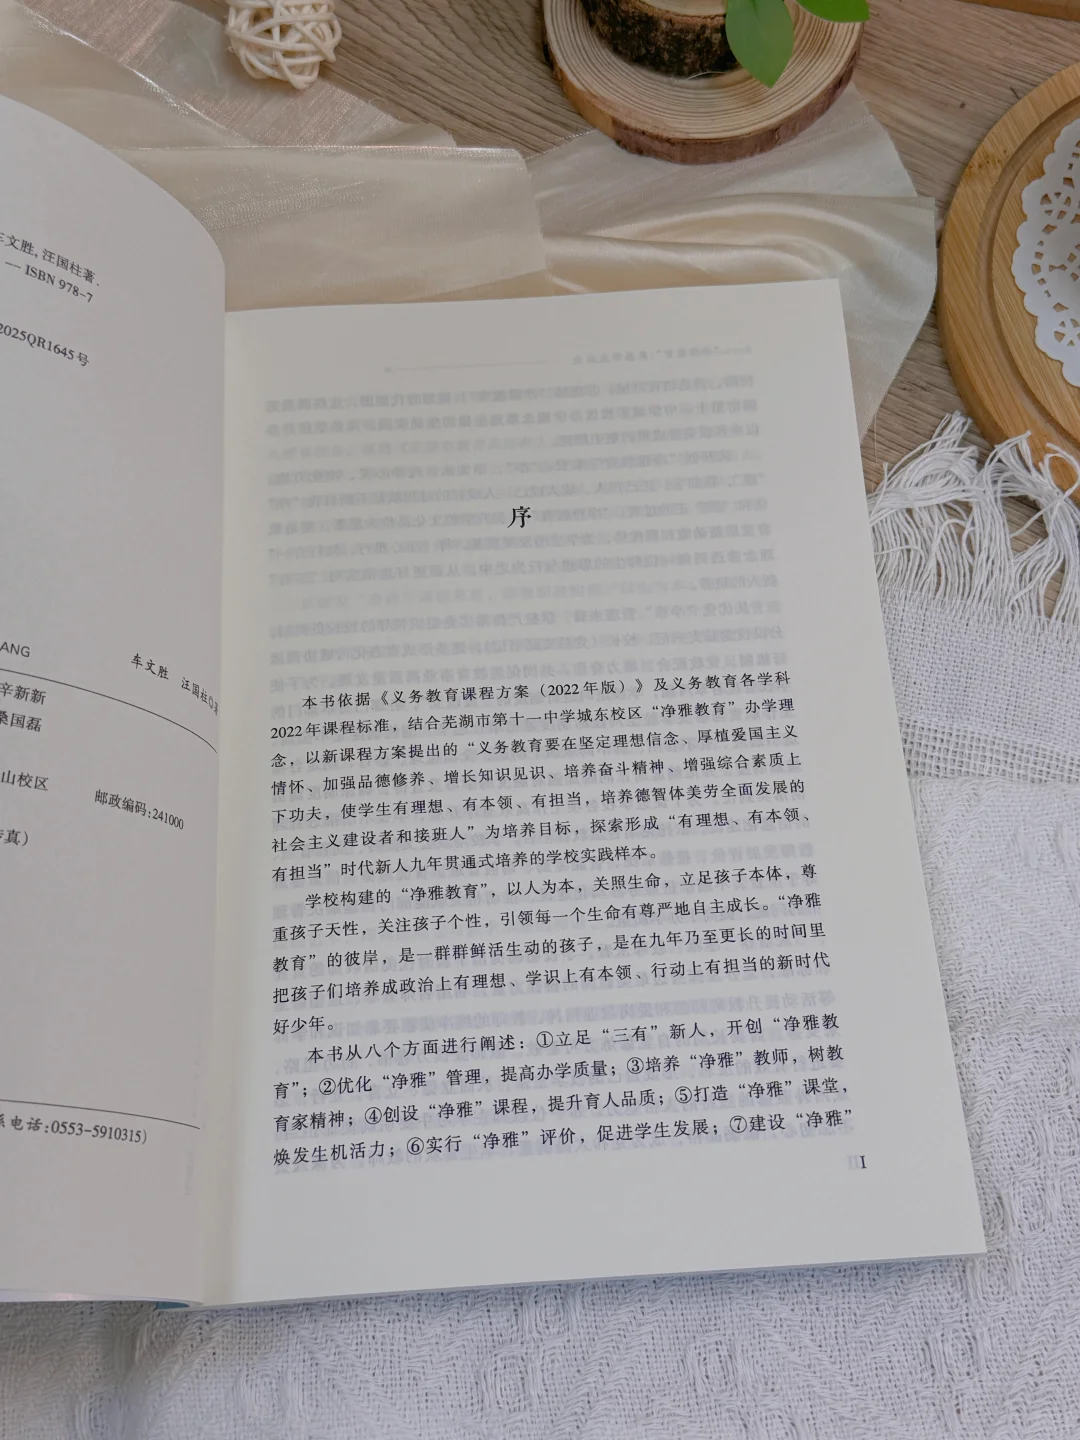 车文胜, 汪国柱著.
— ISBN 978-7
2025QR1645号
ANG
车文胜 汪国柱◎著
辛新新
桑国磊
山校区
邮政编码:241000
传真)
系电话:0553-5910315)
序
本书依据《义务教育课程方案（2022年版）》及义务教育各学科
2022年课程标准，结合芜湖市第十一中学城东校区“净雅教育”办学理
念，以新课程方案提出的“义务教育要在坚定理想信念、厚植爱国主义
情怀、加强品德修养、增长知识见识、培养奋斗精神、增强综合素质上
下功夫，使学生有理想、有本领、有担当，培养德智体美劳全面发展的
社会主义建设者和接班人”为培养目标，探索形成“有理想、有本领、
有担当”时代新人九年贯通式培养的学校实践样本。
学校构建的“净雅教育”，以人为本，关照生命，立足孩子本体，尊
重孩子天性，关注孩子个性，引领每一个生命有尊严地自主成长。“净雅
教育”的彼岸，是一群群鲜活生动的孩子，是在九年乃至更长的时间里
把孩子们培养成政治上有理想、学识上有本领、行动上有担当的新时代
好少年。
本书从八个方面进行阐述：①立足“三有”新人，开创“净雅教
育”；②优化“净雅”管理，提高办学质量；③培养“净雅”教师，树教
育家精神；④创设“净雅”课程，提升育人品质；⑤打造“净雅”课堂，
焕发生机活力；⑥实行“净雅”评价，促进学生发展；⑦建设“净雅”
I